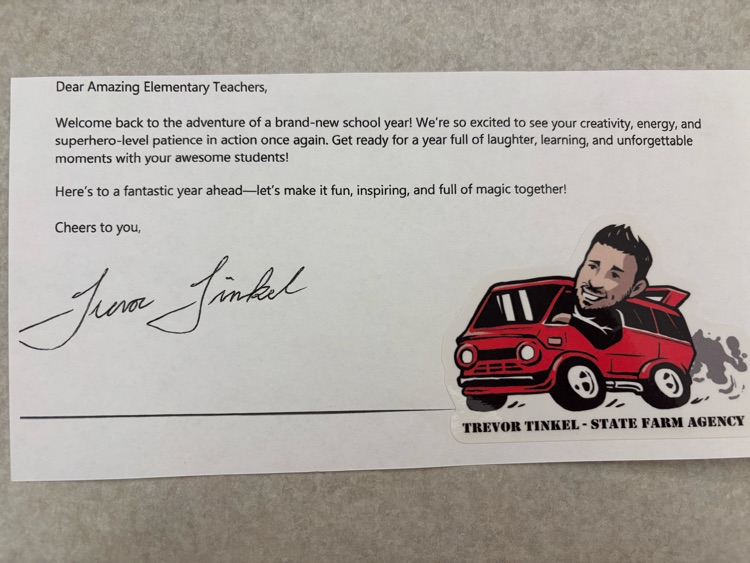 Dear Amazing Elementary Teachers,
Welcome back to the adventure of a brand-new school year! We're so excited to see your creativity, energy, and
superhero-level patience in action once again. Get ready for a year full of laughter, learning, and unforgettable
moments with your awesome students!
Here's to a fantastic year ahead—let's make it fun, inspiring, and full of magic together!
Cheers to you,
Trevor Tinkel
TREVOR TINKEL - STATE FARM AGENCY